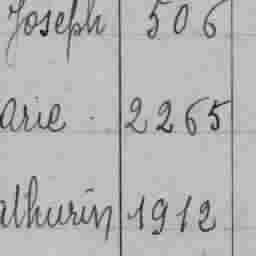 Joseph 506
arie . 2265
athurin 1912